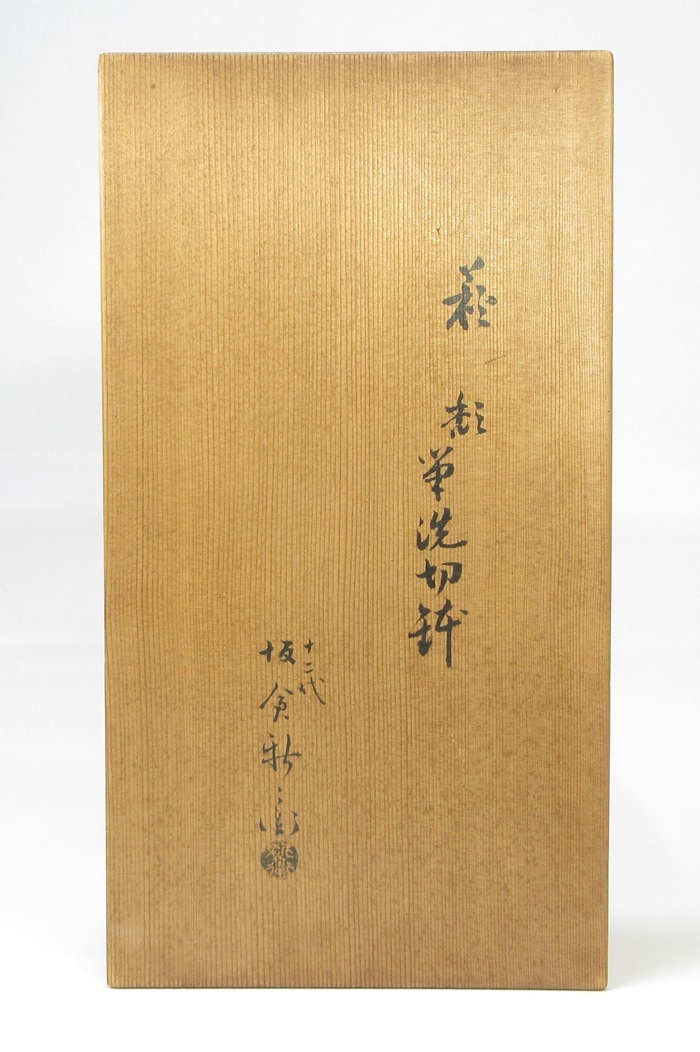 萩
筆洗切鉢
十二代
坂倉新兵衛